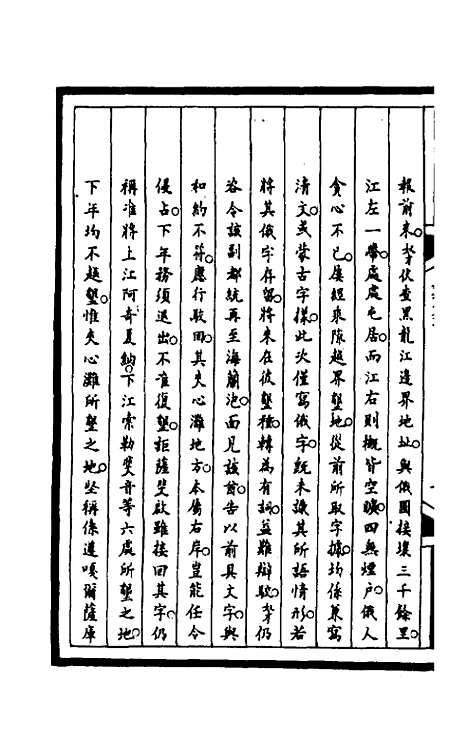 報前來奴才伏查黑龍江邊界地址與俄國接壤三千餘里
江左一帶處處屯居而江右則概皆空曠四無煙戶俄人
貪心不已屢經來隙越界墾地從前所取字據均係兼寫
清文或蒙古字樣此次僅寫俄字既未識其所語情形若
將其俄字存留將來在彼墾種轉為有詞益難辯駁奴才仍
咨令該副都統再至海蘭泡面見該酋告以前具文字與
和約不符應行駁回其夾心灘地方本屬右岸豈能任令
侵占下年務須退出不准復墾詎薩斐啟雖接回其字仍
稱准將上江阿奇夏納下江索勒斐音等六處所墾之地
下年均不越墾惟夾心灘所墾之地堅稱係遵嘎爾薩庫